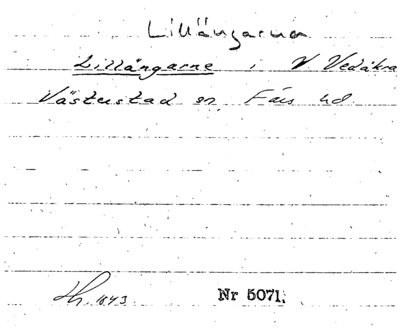 Lillängarna
Lillängarne i V Vedåkra
Västerstad sn, Färs hd.
1843 Nr 5071.